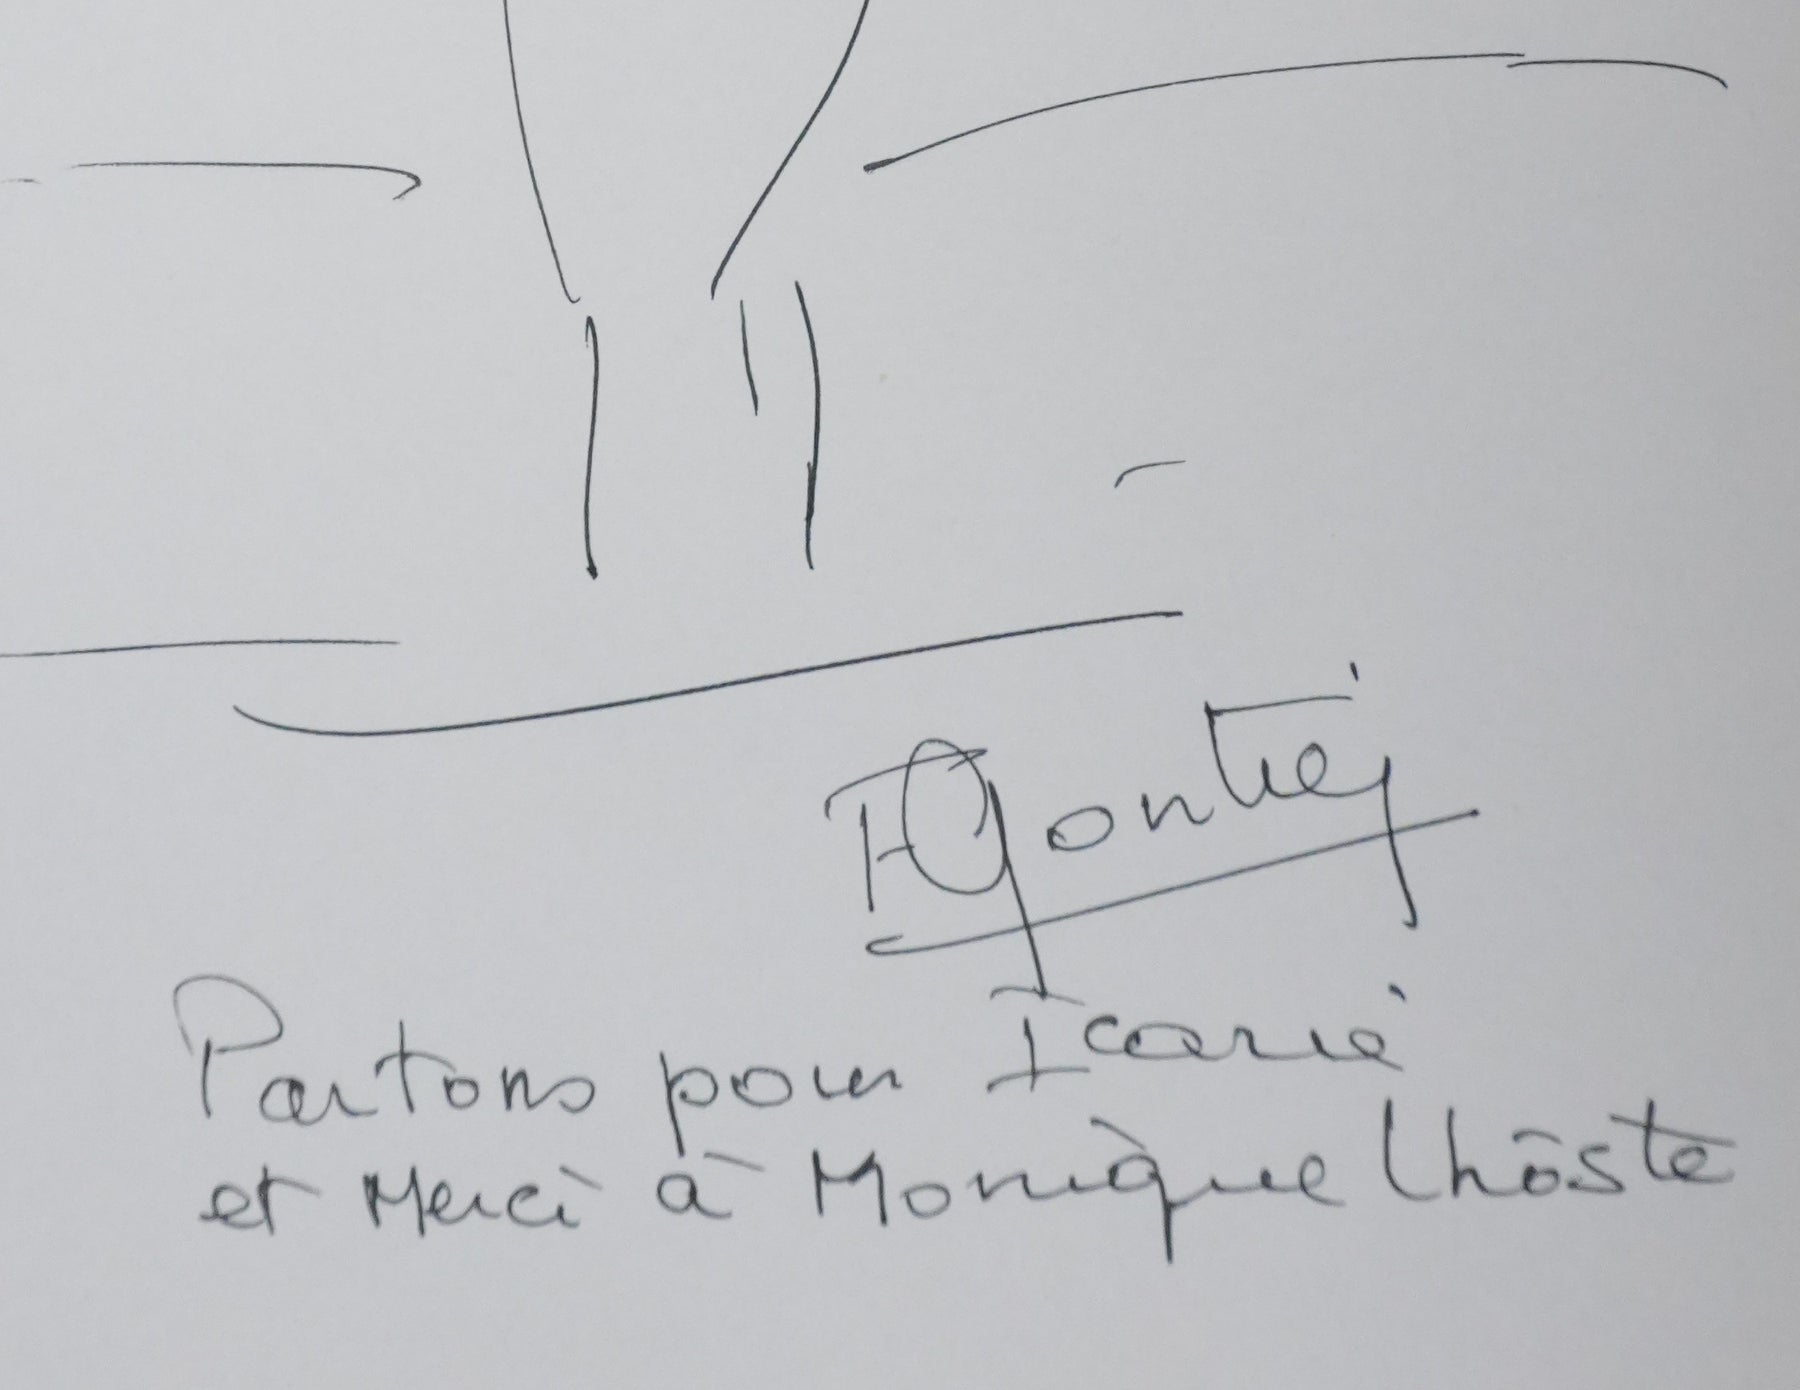 FGontier
Partons pour Icarie
et Merci à Monique Lhoste